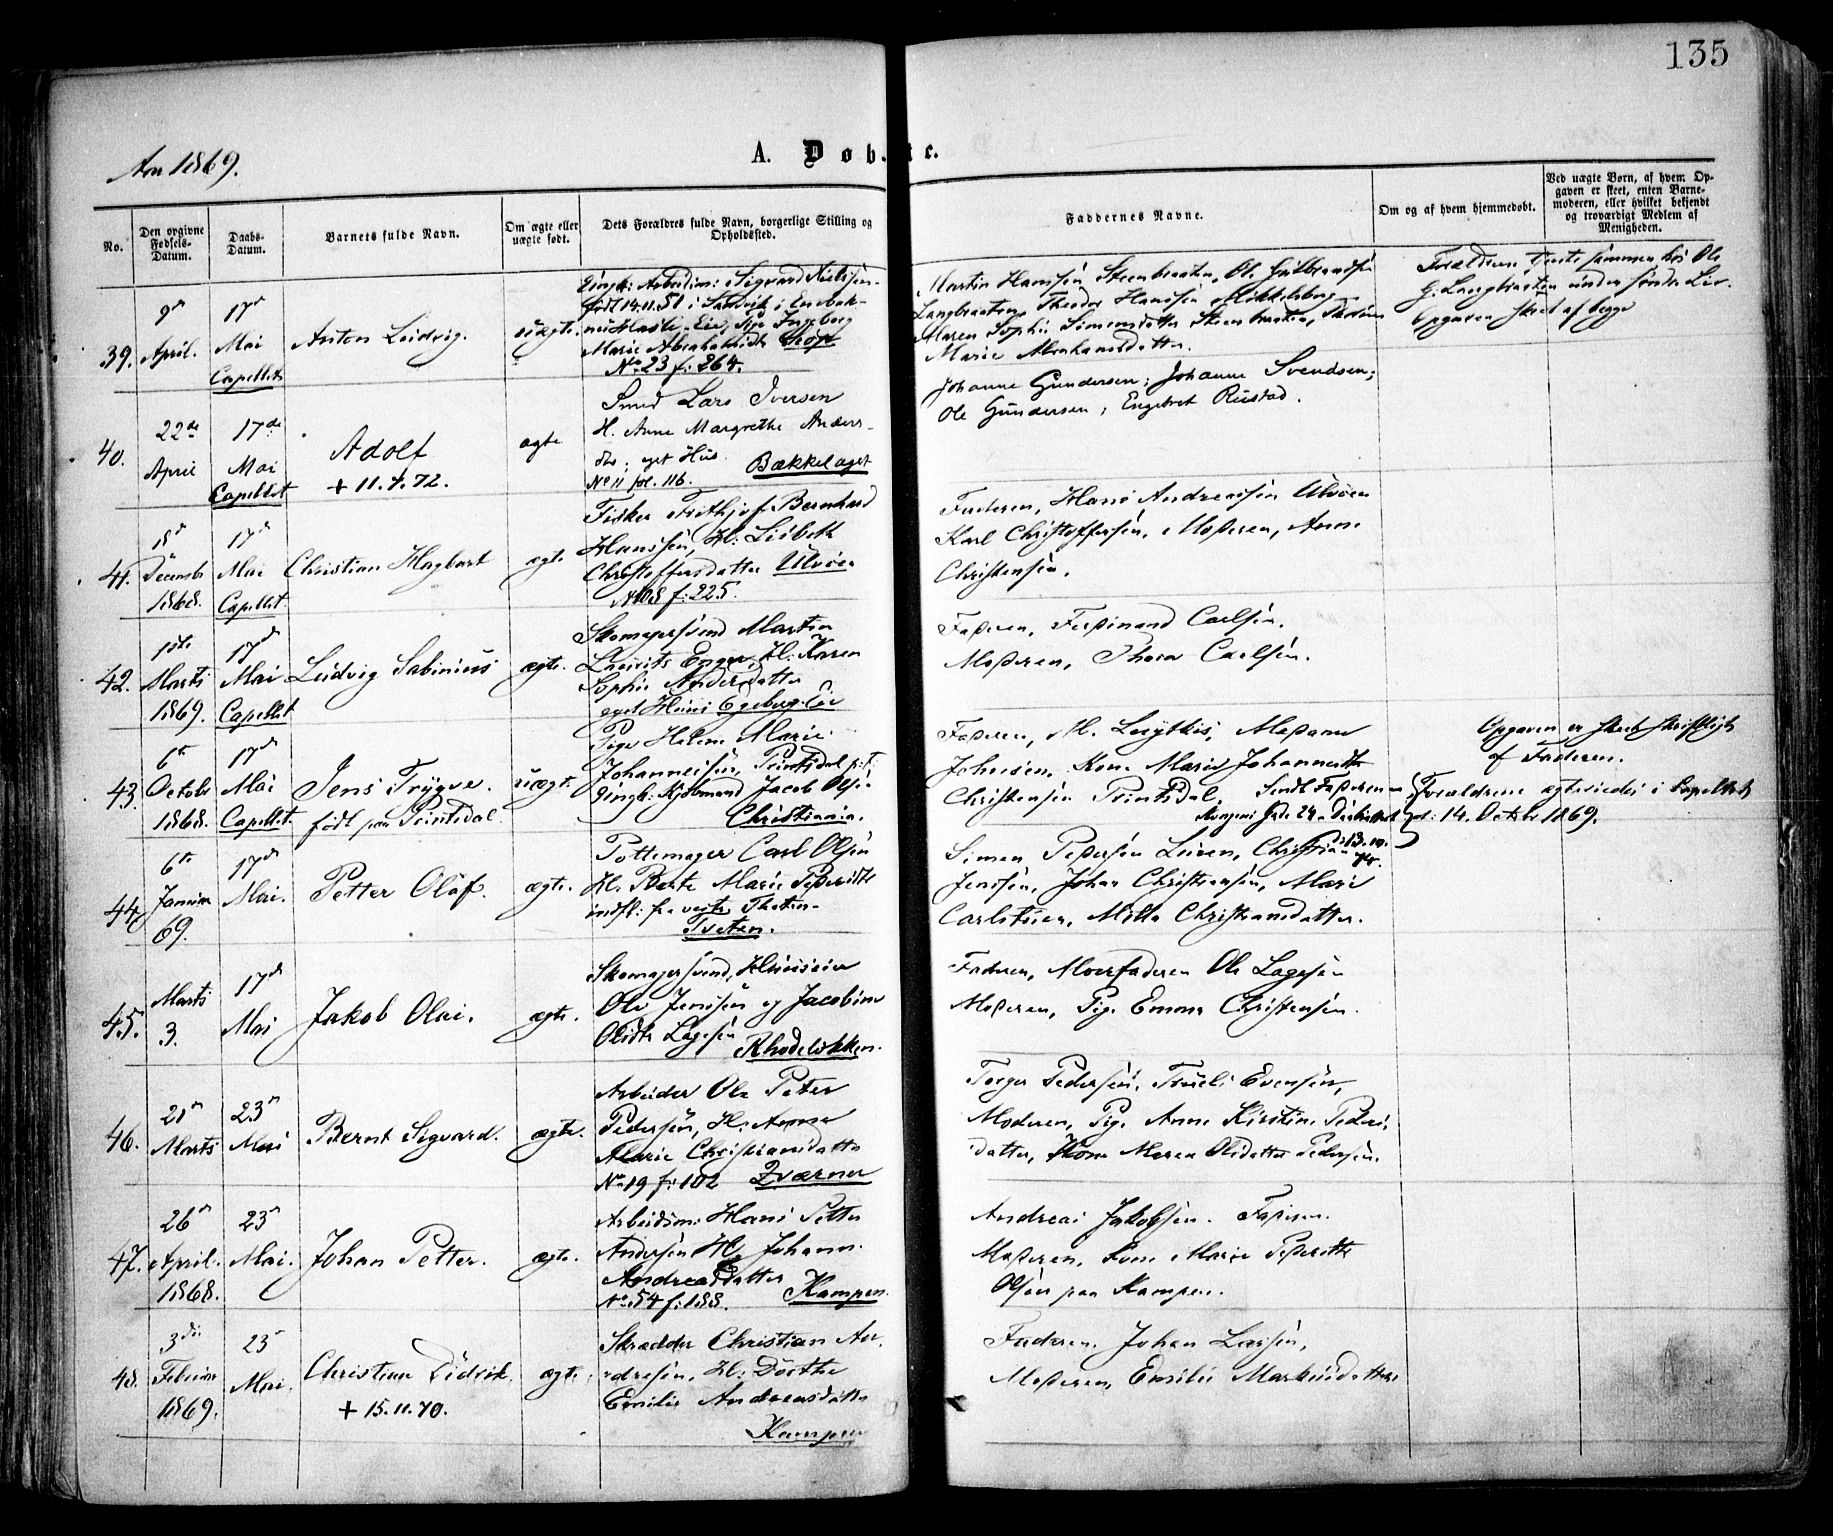 135
Ao 1869.
A. Døbte.
No.
Den opgivne Fødsels-Datum.
Daabs-Datum.
Barnets fulde Navn.
Om ægte eller uægte født.
Dets Forældres fulde Navn, borgerlige Stilling og Opholdssted.
Faddernes Navne.
Om og af hvem hjemmedøbt.
Ved uægte Børn, af hvem Opgaven er skeet, enten Barnemoderen, eller hvilket bekjendt og troværdigt Medlem af Menigheden.
39.
9de
April.
17de
Mai
Capellet
Anton Ludvig.
uægte.
Ungk: Arbeidsm: Sigvard Nielsen
født 14.11.51 i Sandvik
Pige Ingeborg
Marie Abrahamsdtr
No 23 f: 264.
Martin Hansen Steenbraaten, Ole Gulbrandsen
Langbraaten, Theodor Hansen Mikkelsberg
Maren Sophie Simensdatter Steenbraaten,
Marie Abrahamsdatter.
Forældrene tjente sammen hos Ole
G. Langbraaten under søndre
Opgaven skeet af begge
40.
22de
April
17de
Mai
Capellet
Adolf
+ 11.4.72.
ægte
Smed Lars Iversen
H. Anne Margrethe Anders-
dtr; eget Hus.
No 11 fol. 116. Bækkelaget
Johanne Gundersen; Johanne Svendsen;
Ole Gundersen; Engebret Rustad.
41.
18de
Decembr
1868.
17de
Mai
Capellet
Christian Hagbart
ægte
Fisker Frithjof Bernhard
Hanssen, H: Lisbeth
Christoffersdatter Ulvøen
No 108 f: 225.
Faderen, Hans Andreassen Ulvøen
Karl Christoffersen, Moderen, Anne
Christensen.
42.
1ste
Marts
1869.
17de
Mai
Capellet
Ludvig Sabinius
ægte.
Skomagersvend Martin
Laurits Enger, H: Karen
Sophie Andersdatter
eget Huus Egeberg Eie
Faderen, Ferdinand Carlsen.
Moderen, Thora Carlsen.
43.
6te
Octobr
1868.
17de
Mai
Capellet.
Jens Trygve.
født paa Printsdal.
uægte
Pige Helene Marie
Johannesen, Printsdal
Ungk: Kjøbmand Jacob Olsen
Christiania.
Faderen, Madame
Johnsen, Kone Marie Johannesdtr
Christensen Printsdal.
Opgaven er skeet skriftligt
af Faderen.
Forældrene ægteviedes i Capellet
14. Octbr 1869.
44.
6te
Januar
69.
17de
Mai.
Petter Olaf.
ægte.
Pottemager Carl Olsen
H. Berte Marie Pedersdtr
indfl: fra vestre Thoten
Tveten.
Simen Pedersen Leiren, Christian
Jenssen, Johan Christiansen, Marie
Carlstsien, Mille Christiansdatter.
45.
Marts
3.
17de
Mai
Jakob Olai.
ægte.
Skomagersvend, Huuseier
Ole Jenssen og Jacobine
Olsdtr Lagesen
Rhodeløkken.
Faderen, Morfaderen Ole Lagesen
Moderen, Pige Emma Christensen.
46.
21de
Marts
23de
Mai
Bernt Sigvard.
ægte.
Arbeider Ole Peter
Pedersen, H: Anne
Marie Christiansdatter
No 19 f: 102 Qværner
Torger Pedersen, Truels Evensen,
Moderen, Pige Anne Kirstine Peders-
datter, Kone Maren Olsdatter Pedersen.
47.
26de
April.
1868.
23de
Mai.
Johan Petter.
ægte.
Arbeidsm: Hans Petter
Andersen H. Johanne
Andreasdatter
No 54 f: 188. Kampen.
Andreas Jakobsen. Faderen.
Moderen, Kone Marie Pedersdtr
Olsen paa Kampen.
48.
3die
Februar
1869.
23de
Mai.
Christian Didrik.
+ 15.11.70.
ægte.
Skrædder Christian An-
dresen, H: Dorthe
Emilie Andreasdatter
Kampen
Faderen. Johan Larsen,
Moderen, Emilie Markusdatter